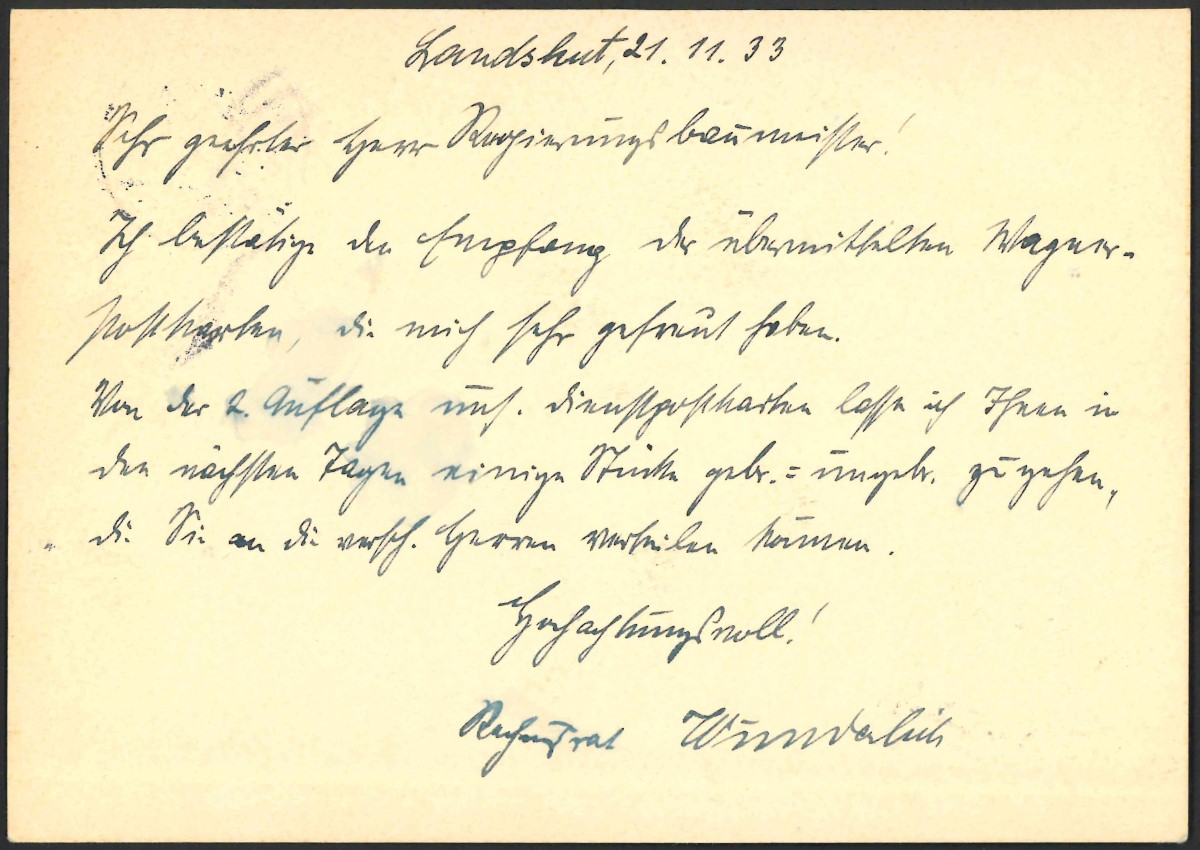 Landshut, 21. 11. 33
Sehr geehrter Herr Regierungsbaumeister!
Ich bestätige den Empfang der übermittelten Wagner-
postkarten, die mich sehr gefreut haben.
Von der 2. Auflage uns. Dienstpostkarten lasse ich Ihnen in
den nächsten Tagen einige Stücke gebr. = ungebr. zugehen,
die Sie an die versch. Herren verteilen können.
Hochachtungsvoll!
Rechngsrat Wunderlich